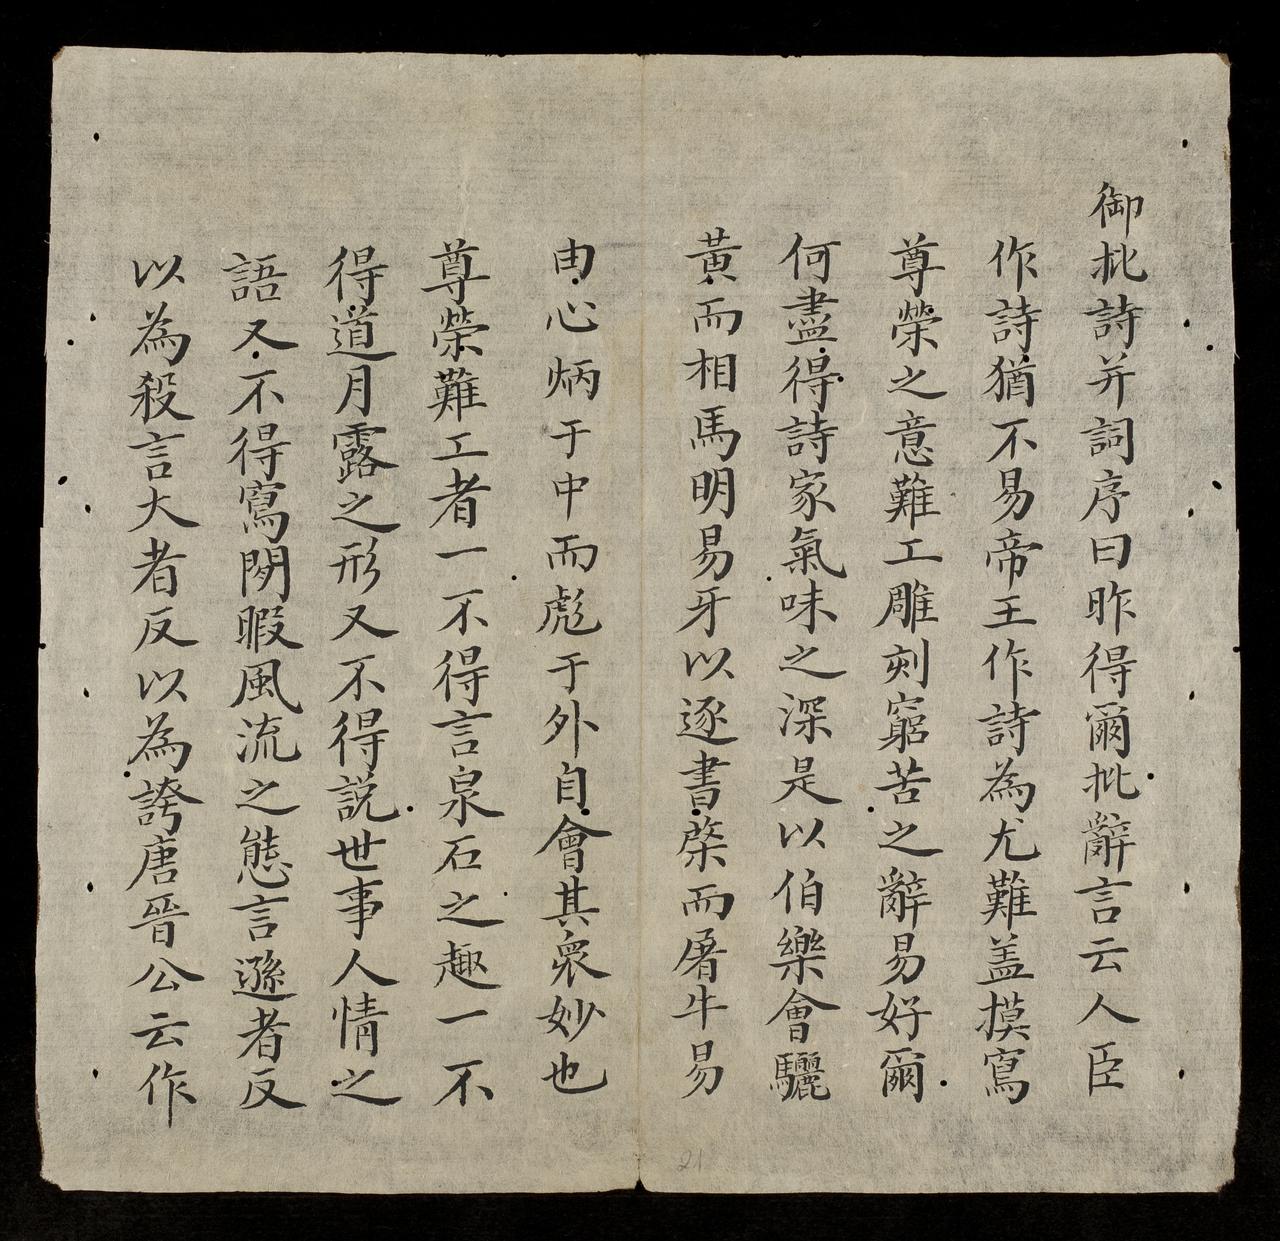 御批詩并詞序曰昨得爾批辭言云人臣
作詩猶不易帝王作詩為尤難盖摸寫
尊榮之意難工雕刻窮苦之辭易好爾
何盡得詩家氣味之深是以伯樂會驪
黃而相馬明易牙以逐書棨而屠牛易
由心炳于中而彪于外自會其衆妙也
尊榮難工者一不得言泉石之趣一不
得道月露之形又不得説世事人情之
語又不得寫閒暇風流之態言遜者反
以為殺言大者反以為誇唐晉公云作
21